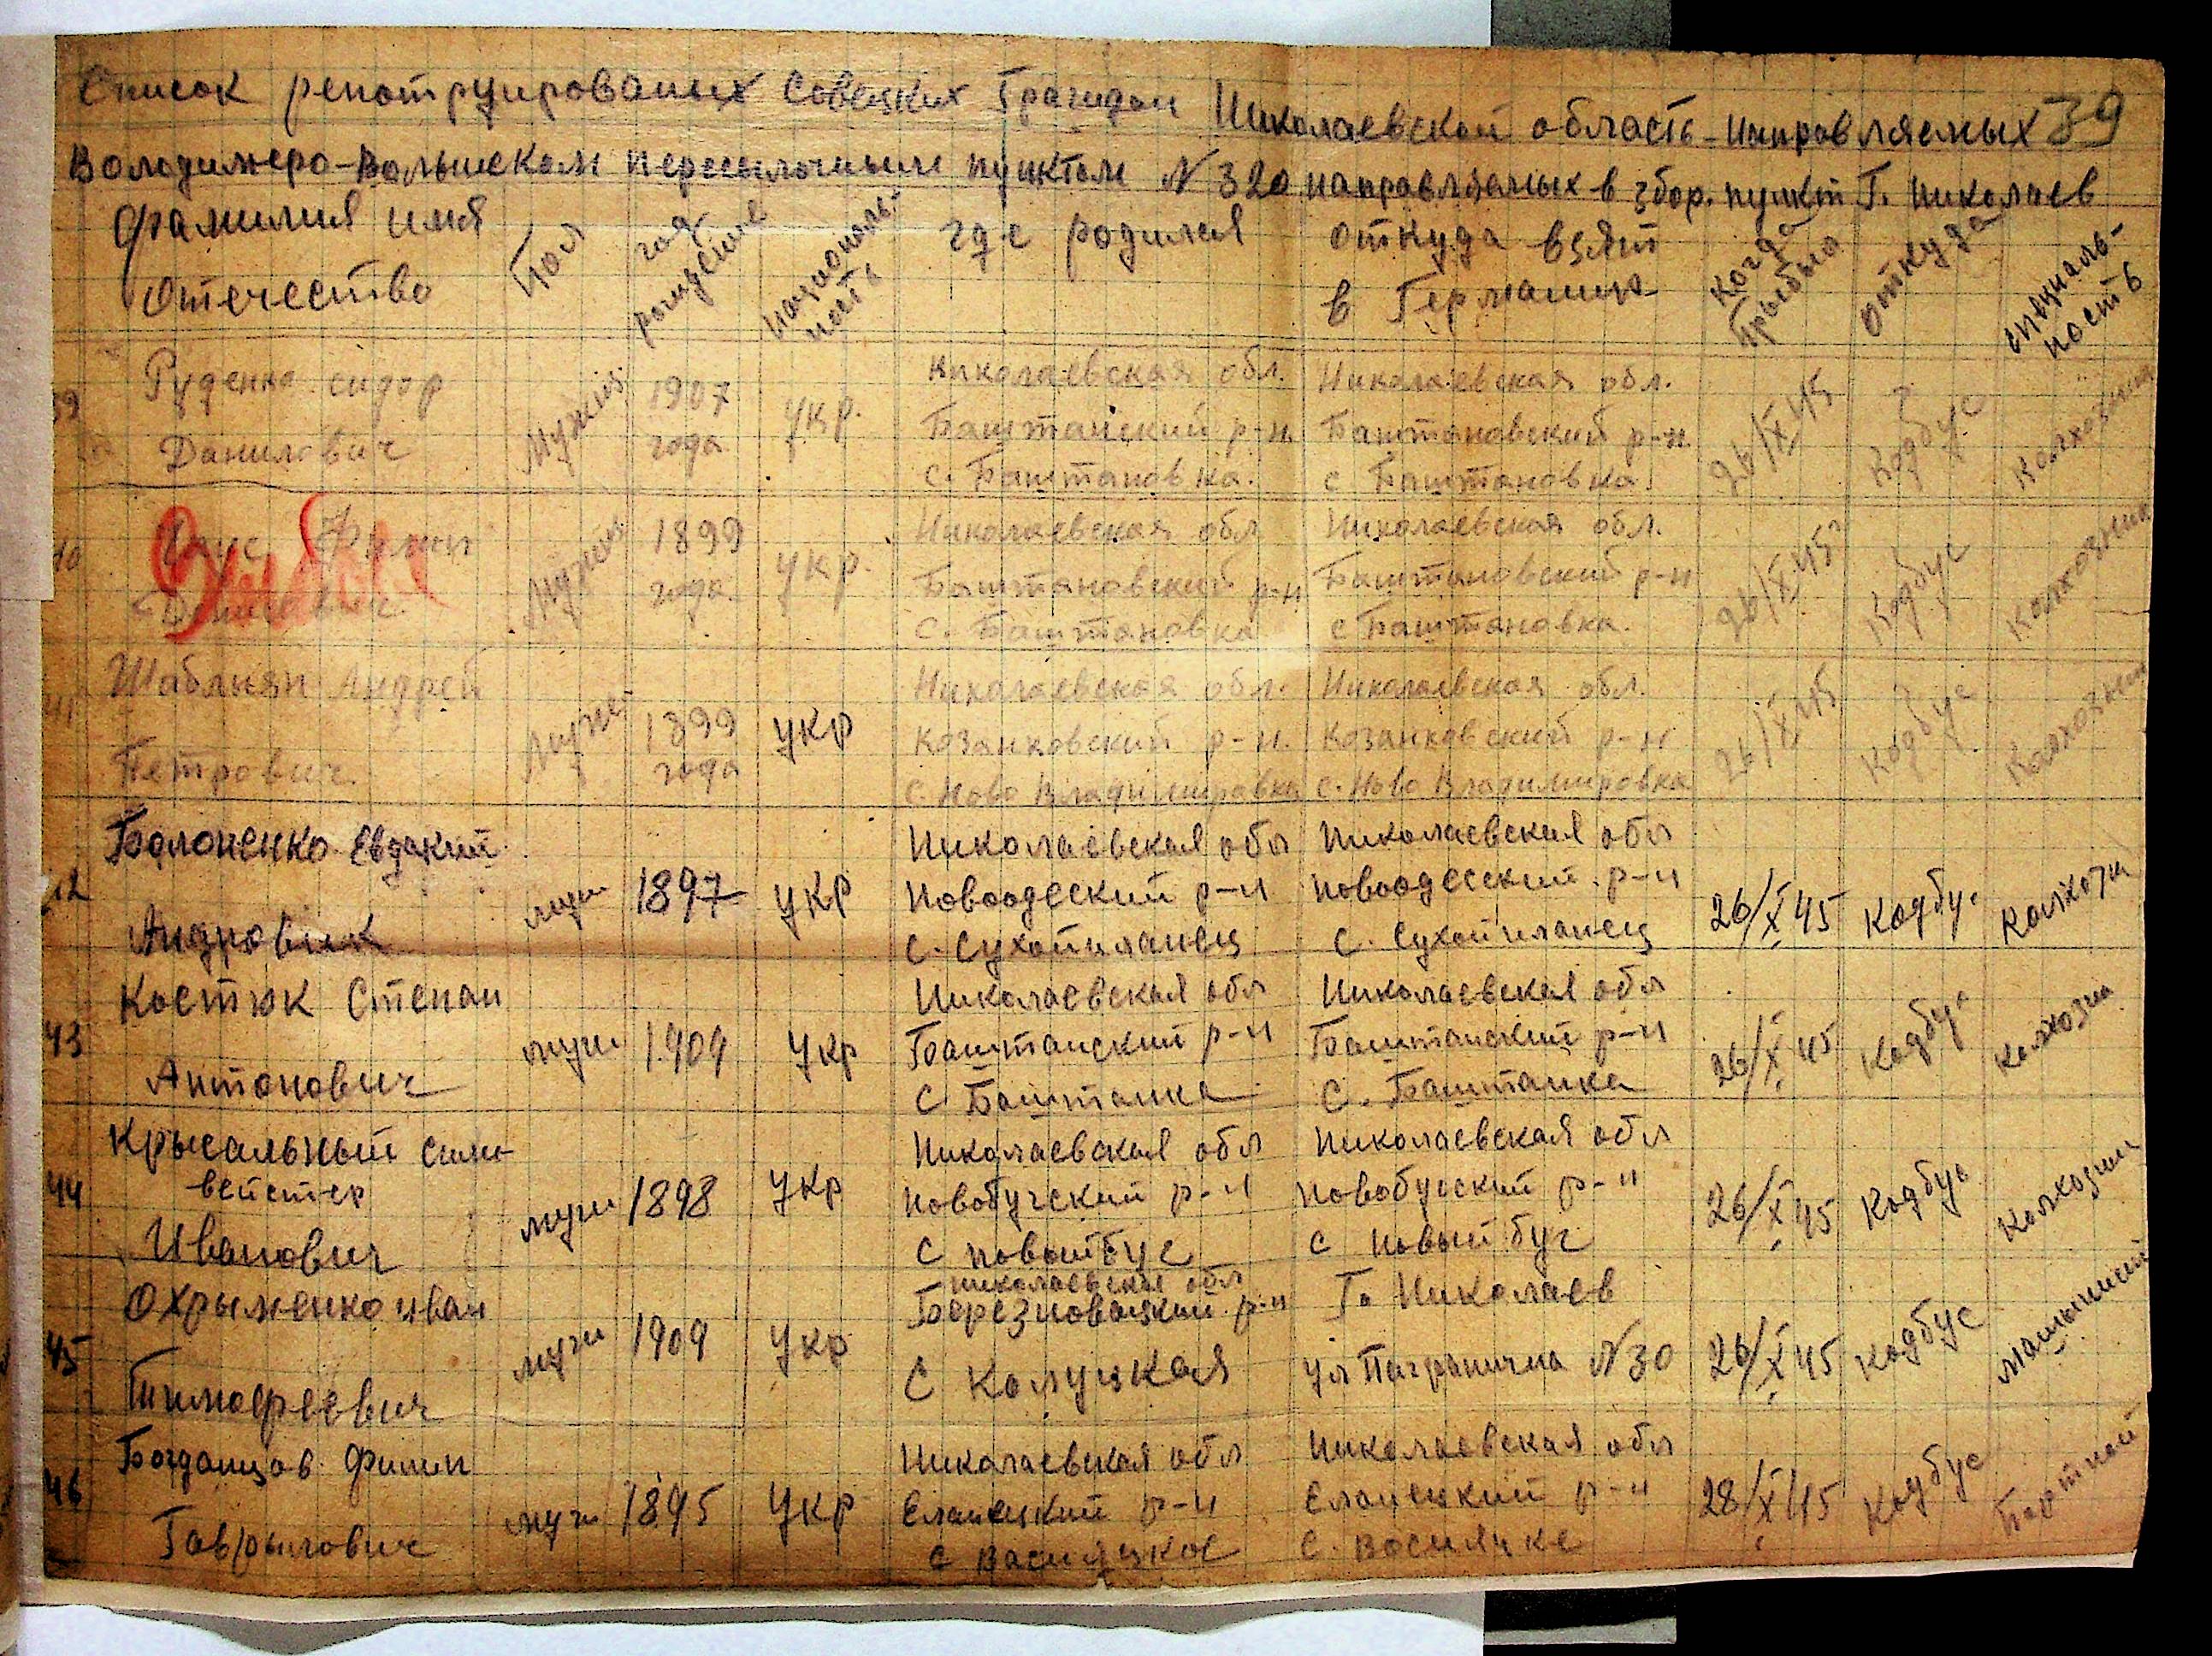 Список репотруированых Совецких Гражидан Николаевской область-направляемых 39
Володимеро-Волынским пересылочным пунктом N 320 направляемых в збор. пункт Г. Николаев
Фамилия имя
Отечество
Пол
год
рождение
националь-
ность
где родился
откуда взят
в Германию
Когда
прыбыл
откуда
специаль-
ность
39
Руденко сидор
Данилович
Мужск.
1907
года
укр.
Николаевская обл.
Баштанский р-н
с. Баштановка.
Николаевская обл.
Баштановский р-н
с Баштановка.
26/X 45
г.
Кодбус
Колхозник
40
1899
года.
укр.
Николаевская обл
Баштановский р-н
С. Баштановка
Николаевская обл.
Баштановский р-н
с Баштановка.
26/X 45
Кодбус
Колхозник
41
Шаблиян Андрей
Петрович
1899
года
укр
Николаевская обл.
Козанковский р-н.
С. Ново Владимировка
Николаевская обл.
Козанковский р-н
С. Ново Владимировка
26/X 45
Кодбус
Колхозник
42
Болоненко Евдокий
муж
1897
укр
Николаевская обл
Новоодеский р-н
С. Сухойиланец
Николаевская обл
Новоодесский р-н
С. Сухойиланец
26/X 45
Кодбус
Колхозн
43
Костюк Степан
Антонович
муж
1909
укр
Николаевская обл
Баштанский р-н
С Баштанка
Николаевская обл
Баштанский р-н
С. Баштанка
26/X 45
Кодбус
колхозн
44
Крысальный Сили-
вейстер
Иванович
муж
1898
укр
Николаевская обл
Новобугский р-н
С новыйбуг
Николаевская обл
Новобугский р-н
С Новый буг
26/X 45
Кодбус
Колхозни
45
Охрыменко иван
Тимофеевич
муж
1909
укр
николаевская обл
Березновацкий р-н
С Калуцкая
Г. Николаев
ул Пагранична N 30
26/X 45
Кодбус
машыніст
46
Богданцов Филип
Гаврылович
муж
1895
укр
Николаевская обл
Еланецкий р-н
Николаевская обл
Еланецкий р-н
28/X 45
Кодбус
Портной